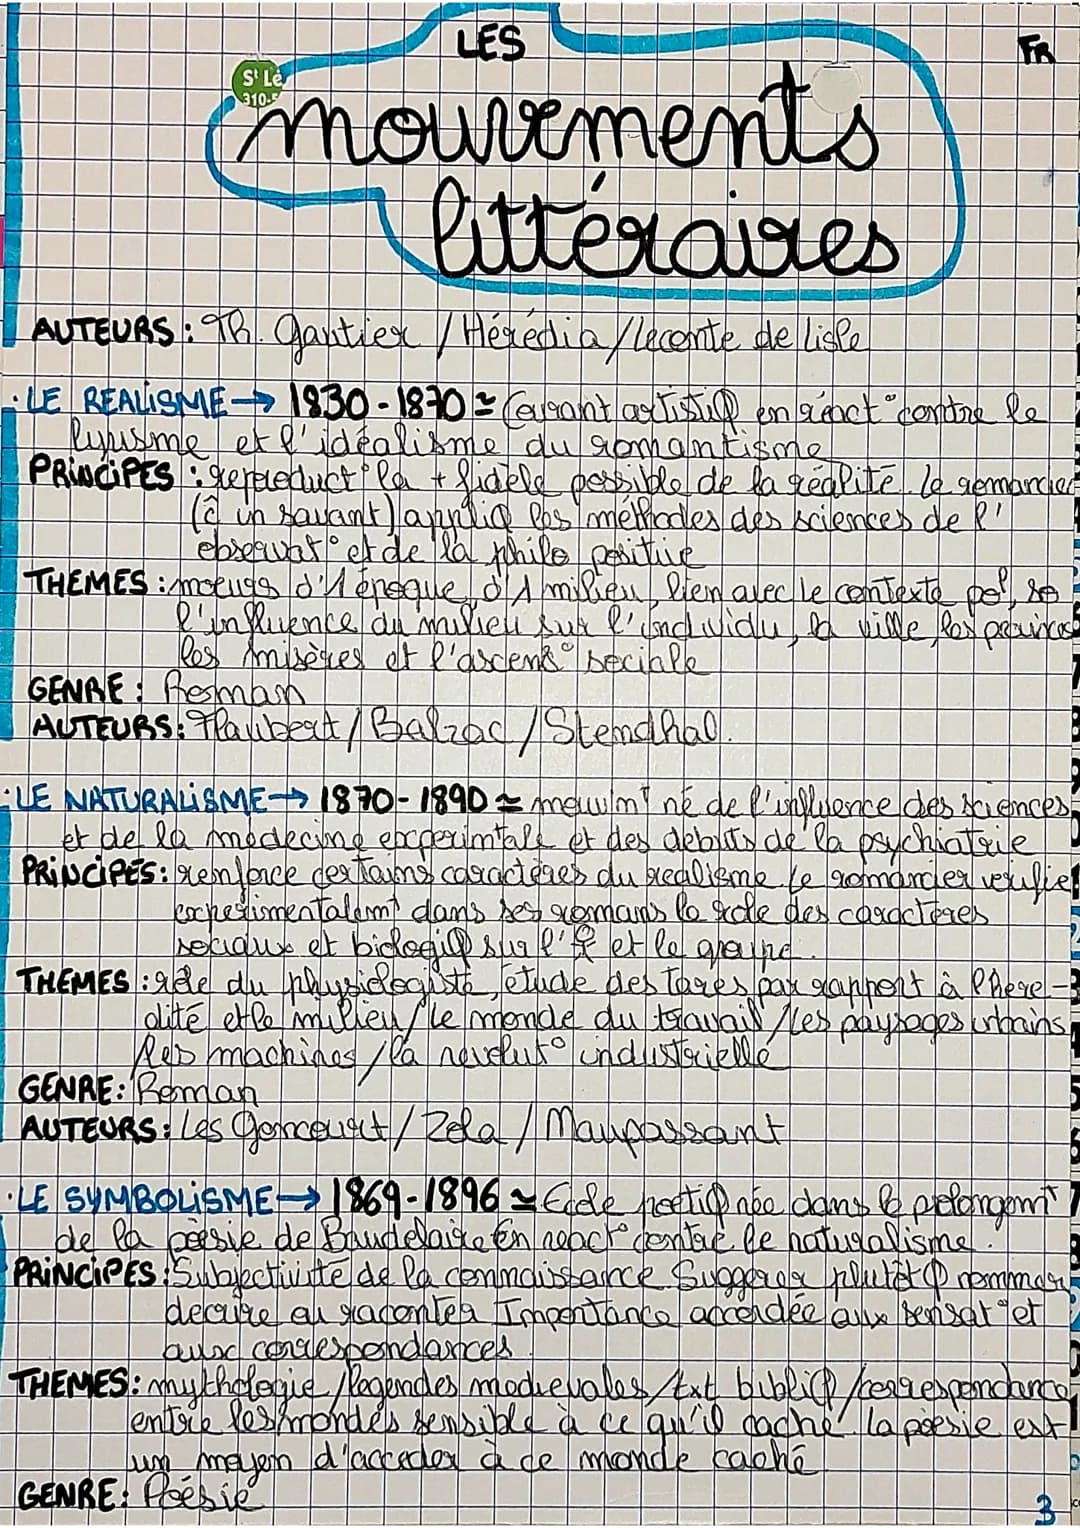 LES
FR
St Lé
310-5
mouvements
littéraires
AUTEURS : Th. Gautier / Hérédia / Leconte de Lisle
• LE REALISME → 1830 - 1870 ≃ Courant artistiq en réact° contre le
lyrisme et l'idéalisme du romantisme
PRINCIPES : reproduct° la + fidèle possible de la réalité. Le romancier
(ĉ un savant) appliq les méthodes des sciences de l'
observat° et de la philo positive
THEMES : moeurs d'1 époque, d'1 milieu, lien avec le contexte pol, so
l'influence du milieu sur l'individu, la ville, les provinces
les misères et l'ascens° sociale
GENRE : Roman
AUTEURS : Flaubert / Balzac / Stendhal.
• LE NATURALISME → 1870 - 1890 ≃ mouvmt né de l'influence des sciences
et de la medecine experimtale et des debuts de la psychiatrie
PRINCIPES : renforce certains caractères du realisme le romancier verifie
experimentalemt dans ses romans le role des caractères
sociaux et biologiq sur l' et le groupe.
THEMES : rôle du physiologiste, étude des tares par rapport à l'here-
dité et le milieu / le monde du travail / les paysages urbains
les machines / la revolut° industrielle
GENRE : Roman
AUTEURS : Les Goncourt / Zola / Maupassant
• LE SYMBOLISME → 1869 - 1896 ≃ Ecole poetiq née dans le prolongemt
de la poèsie de Baudelaire En react° contre le naturalisme.
PRINCIPES : Subjectivité de la connaissance Suggerer plutôt q nommer
decrire ou raconter Importance accordée aux sensat° et
aux correspondances.
THEMES : mythologie / legendes medievales / txt bibliq / correspondance
entre les mondes sensible à ce qu'il cache. la poèsie est
un moyen d'acceder à ce monde caché
GENRE : Poésie
3